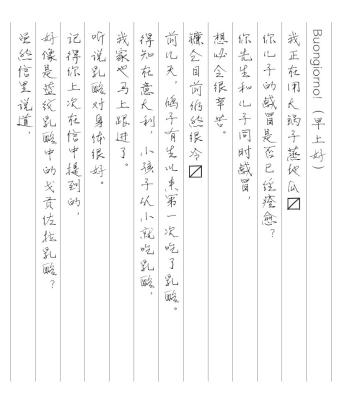 Buongiorno!(早上好)
我正在用天锅子蒸地瓜〼
你儿子的感冒是否已经痊愈?
你先生和儿子同时感冒,
想必会很辛苦。
镰仓目前仍然很冷〼
前几天,鸽子有生以来第一次吃了乳酪。
得知在意大利,小孩子从小就吃乳酪,
我家也马上跟进了。
听说乳酪对身体很好。
记得你上次在信中提到的,
好像是蓝纹乳酪中的戈贡佐拉乳酪?
虽然信里说道,